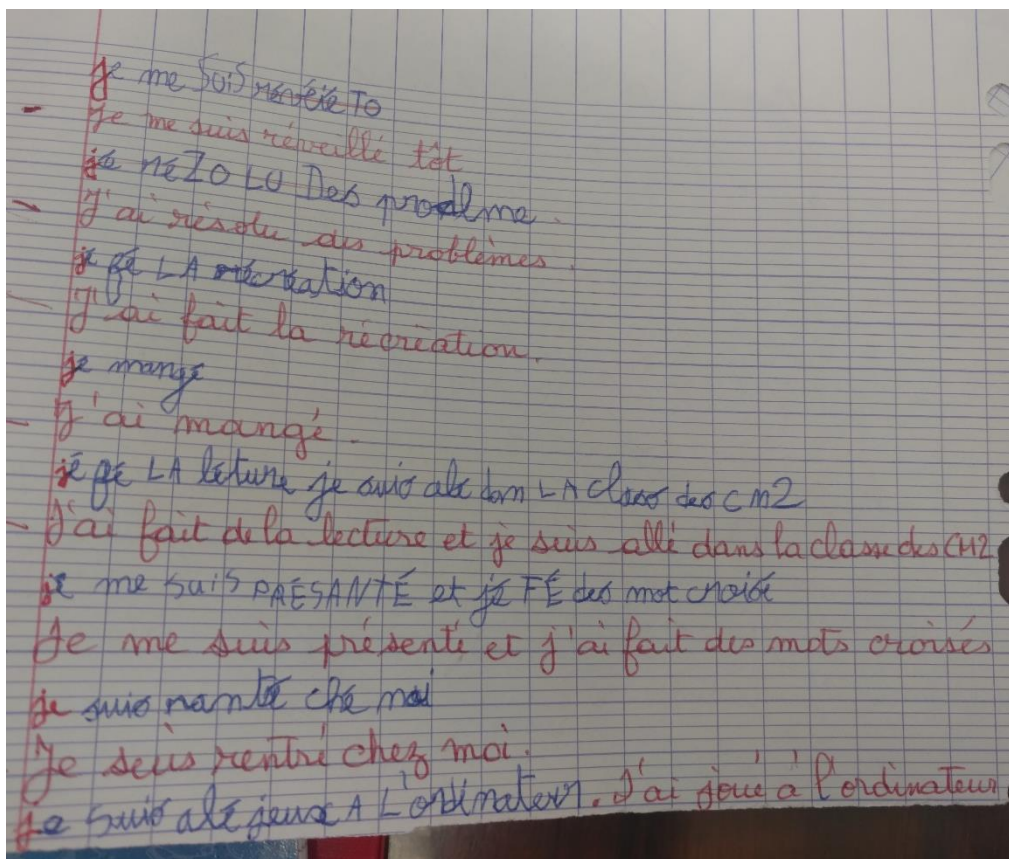 je me suis révéié TO
- Je me suis réveillé tôt
je réZOLU Des prodlme.
- J'ai résolu des problèmes.
je fé LA récréation
- J'ai fait la récréation.
je mangé
- J'ai mangé.
jé fé LA léture je suis alé dan LA class des CM2
- J'ai fait de la lecture et je suis allé dans la classe des CM2
je me suis PRÉSANTÉ et jé FÉ des mot croisé
Je me suis présenté et j'ai fait des mots croisés
je suis rantré ché moi
Je suis rentré chez moi.
je suis alé jeux A L'ordinateur. J'ai joué à l'ordinateur.